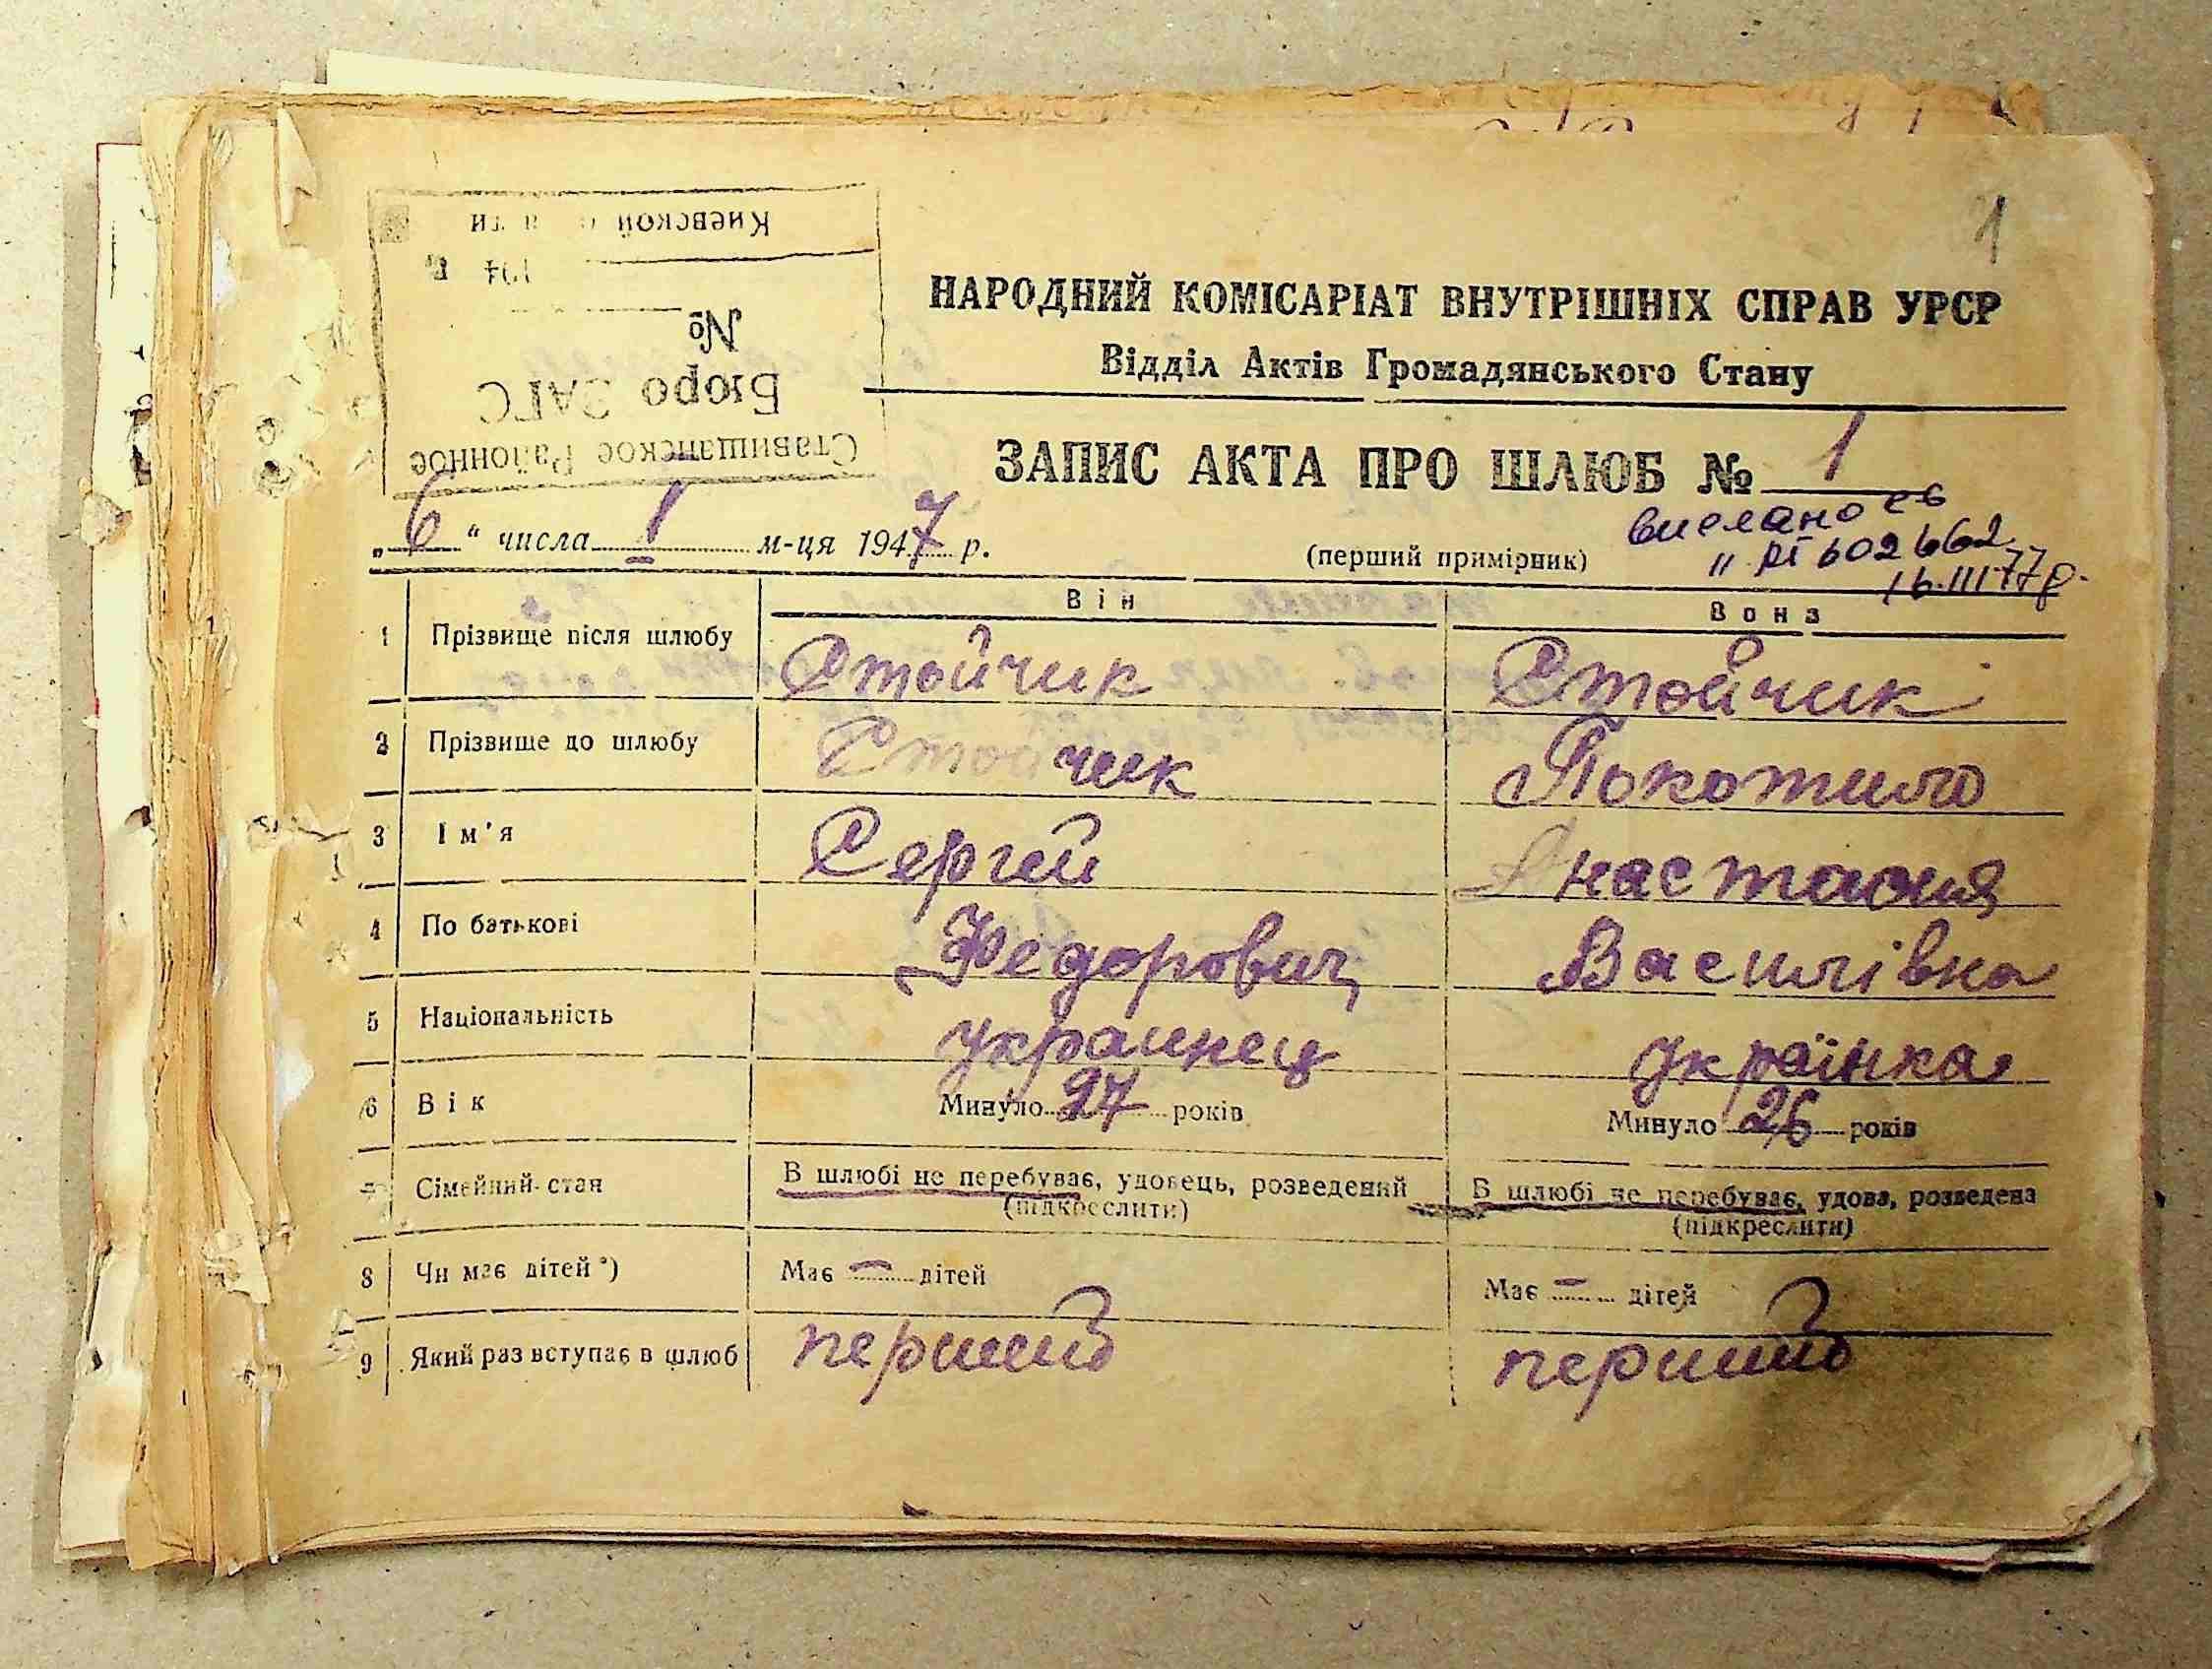 1
Ставищанское Районное
Бюро ЗАГС
№
194 г.
Киевской
НАРОДНИЙ КОМІСАРІАТ ВНУТРІШНІХ СПРАВ УРСР
Відділ Актів Громадянського Стану
ЗАПИС АКТА ПРО ШЛЮБ № 1
„6“ числа I м-ця 1947 р.
(перший примірник)
602662
16.III 77р.
Він Вона
1 Прізвище після шлюбу Стойчик Стойчик
2 Прізвище до шлюбу Стойчик Покотило
3 Ім'я Сергей Анастасия
4 По батькові Федорович Василівна
5 Національність украинец українка
6 Вік Минуло 27 років Минуло 26 років
7 Сімейний стан В шлюбі не перебуває, удовець, розведений В шлюбі не перебуває, удова, розведена
(підкреслити) (підкреслити)
8 Чи має дітей*) Має — дітей Має — дітей
9 Який раз вступає в шлюб первий перший